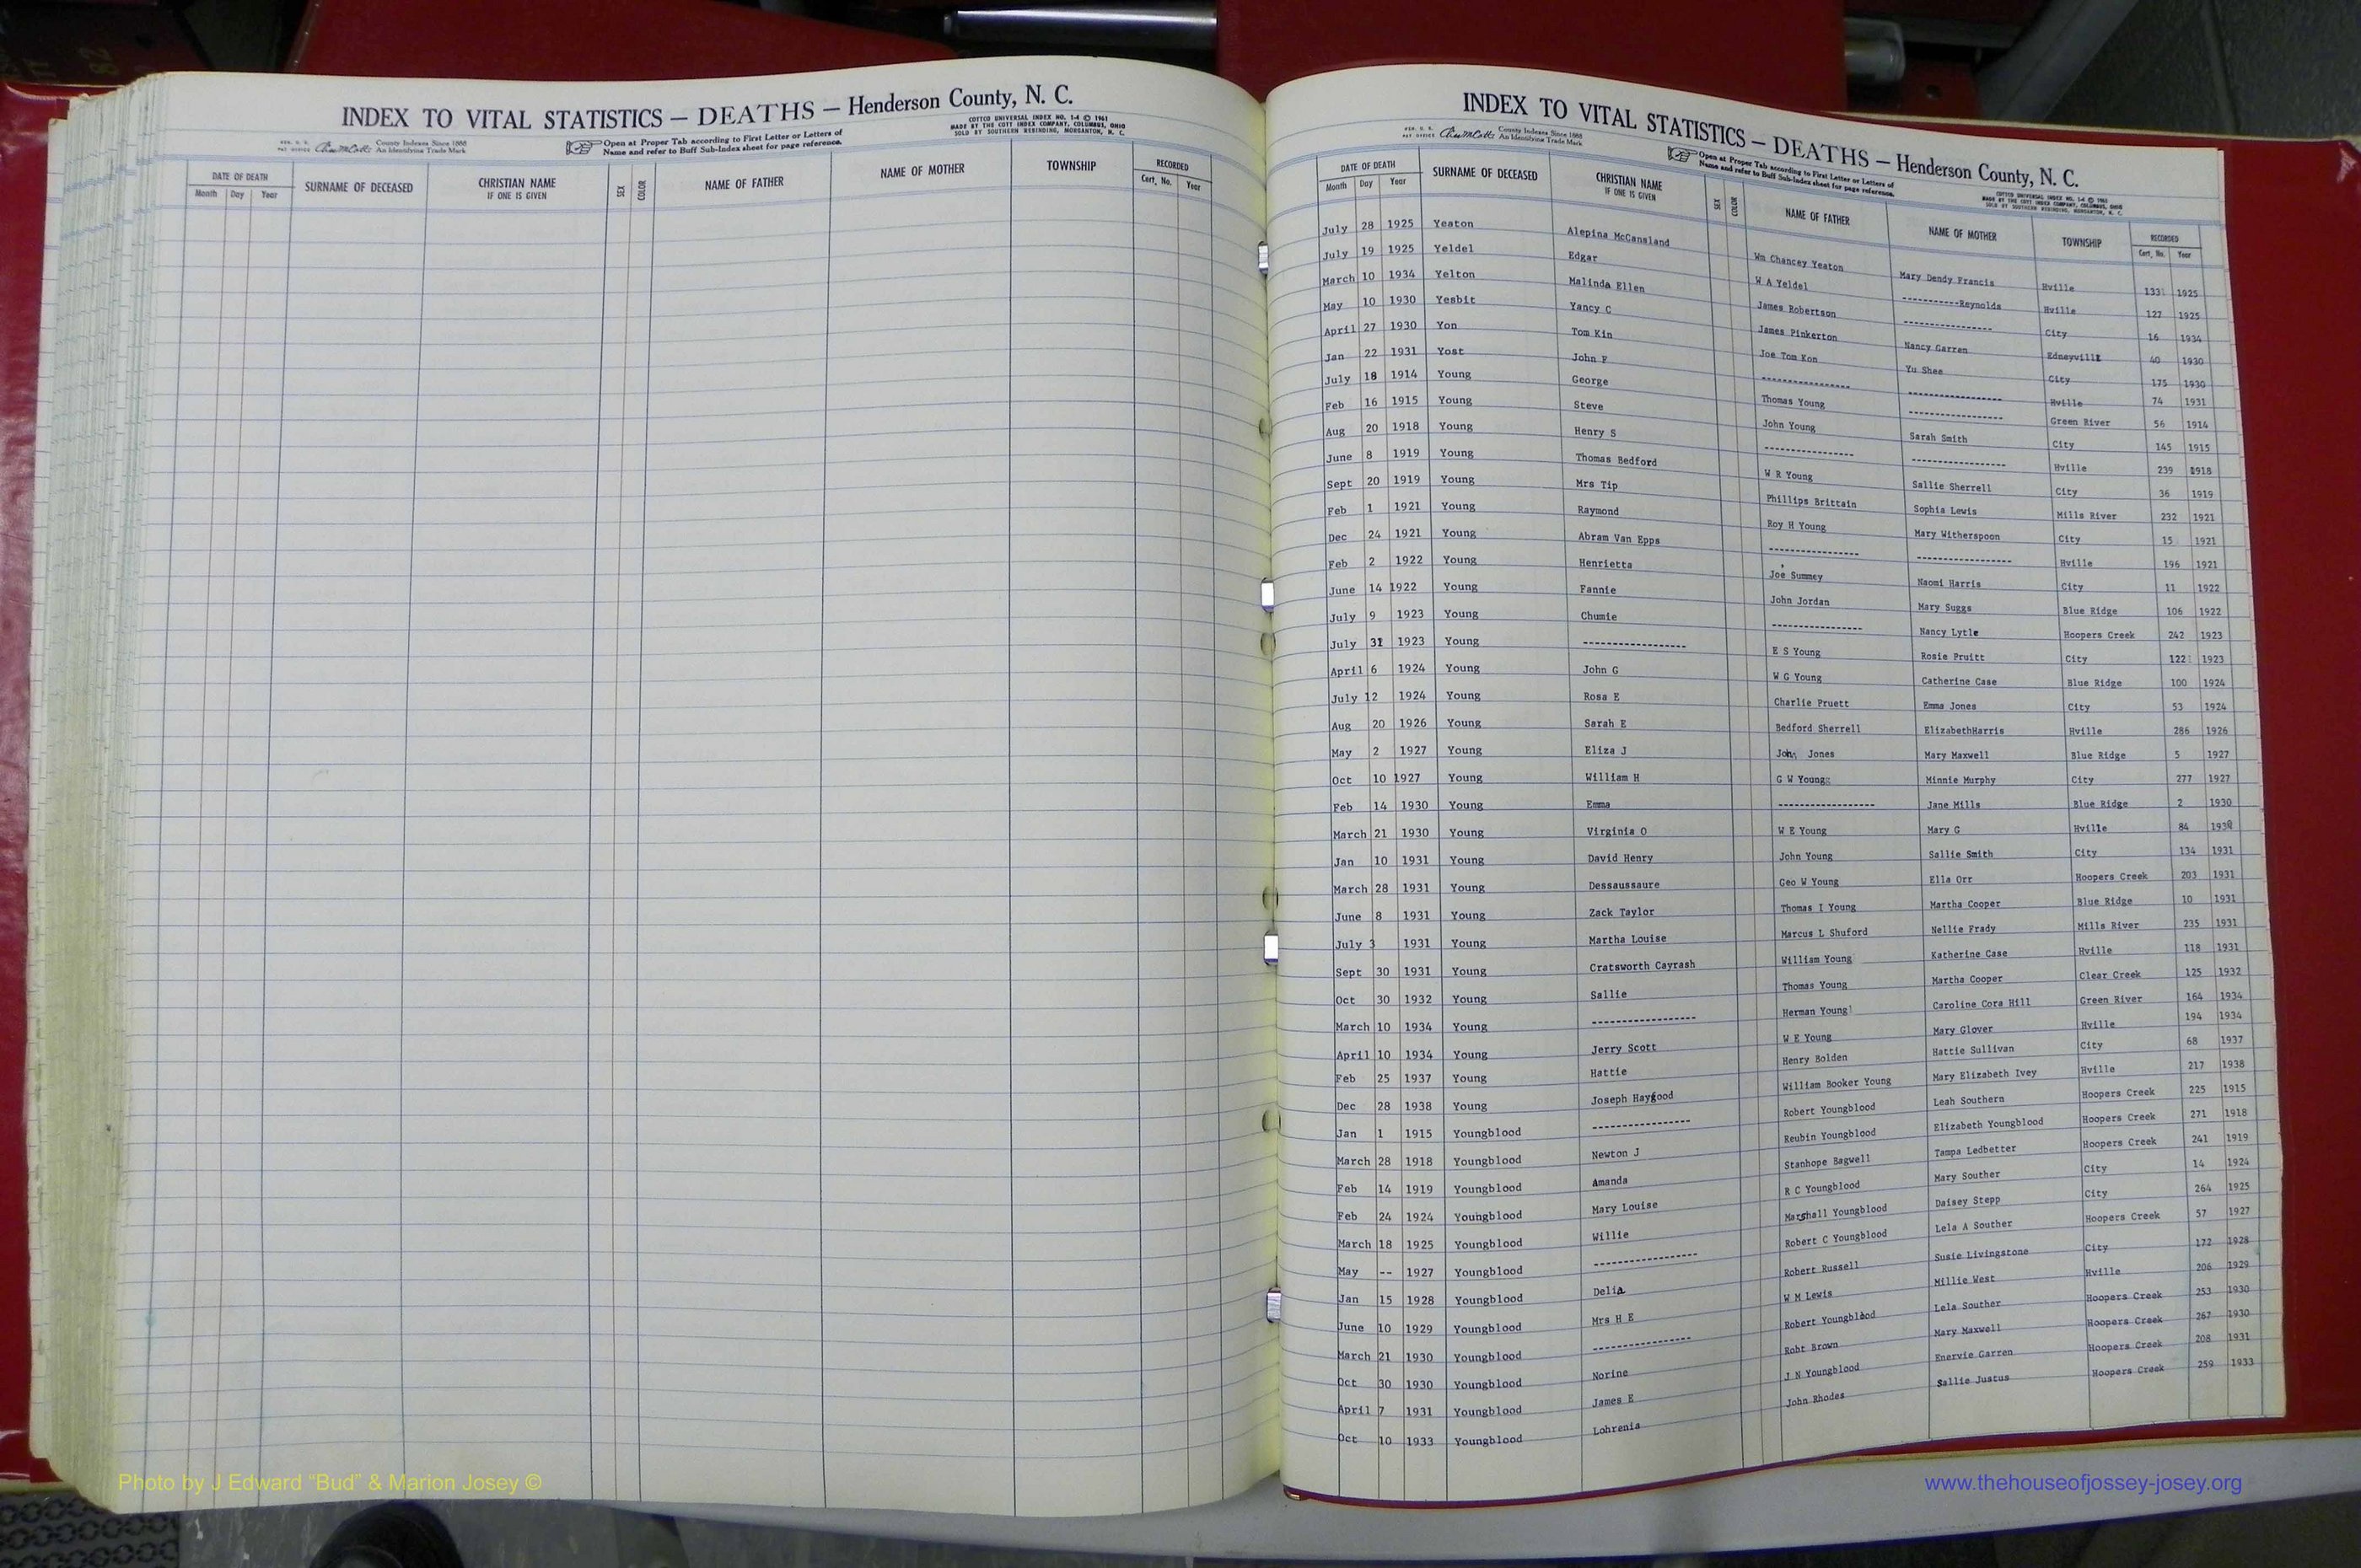 INDEX TO VITAL STATISTICS — DEATHS — Henderson County, N. C.
COTTCO UNIVERSAL INDEX NO. 1-4 © 1961
MADE BY THE COTT INDEX COMPANY, COLUMBUS, OHIO
SOLD BY SOUTHERN REBINDING, MORGANTON, N. C.
County Indexes Since 1888
An Identifying Trade Mark
Open at Proper Tab according to First Letter or Letters of
Name and refer to Buff Sub-Index sheet for page reference.
DATE OF DEATH SURNAME OF DECEASED CHRISTIAN NAME IF ONE IS GIVEN SEX COLOR NAME OF FATHER NAME OF MOTHER TOWNSHIP RECORDED
Month Day Year Cert. No. Year
INDEX TO VITAL STATISTICS — DEATHS — Henderson County, N. C.
County Indexes Since 1888
An Identifying Trade Mark
Open at Proper Tab according to First Letter or Letters of
Name and refer to Buff Sub-Index sheet for page reference.
COTTCO UNIVERSAL INDEX NO. 1-4 © 1961
MADE BY THE COTT INDEX COMPANY, COLUMBUS, OHIO
SOLD BY SOUTHERN REBINDING, MORGANTON, N. C.
DATE OF DEATH SURNAME OF DECEASED CHRISTIAN NAME IF ONE IS GIVEN SEX COLOR NAME OF FATHER NAME OF MOTHER TOWNSHIP RECORDED
Month Day Year Cert. No. Year
July 28 1925 Yeaton Alepina McCansland Wm Chancey Yeaton Mary Dendy Francis Hville 133 1925
July 19 1925 Yeldel Edgar W A Yeldel -----------Reynolds Hville 127 1925
March 10 1934 Yelton Malinda Ellen James Robertson ----------------- City 16 1934
May 10 1930 Yesbit Yancy C James Pinkerton Nancy Garren Edneyville 40 1930
April 27 1930 Yon Tom Kin Joe Tom Kon Yu Shee City 175 1930
Jan 22 1931 Yost John F ----------------- ----------------- Hville 74 1931
July 18 1914 Young George Thomas Young ----------------- Green River 56 1914
Feb 16 1915 Young Steve John Young Sarah Smith City 145 1915
Aug 20 1918 Young Henry S ----------------- ----------------- Hville 239 1918
June 8 1919 Young Thomas Bedford W R Young Sallie Sherrell City 36 1919
Sept 20 1919 Young Mrs Tip Phillips Brittain Sophia Lewis Mills River 232 1921
Feb 1 1921 Young Raymond Roy H Young Mary Witherspoon City 15 1921
Dec 24 1921 Young Abram Van Epps ----------------- ----------------- Hville 196 1921
Feb 2 1922 Young Henrietta Joe Summey Naomi Harris City 11 1922
June 14 1922 Young Fannie John Jordan Mary Suggs Blue Ridge 106 1922
July 9 1923 Young Chumie ----------------- Nancy Lytle Hoopers Creek 242 1923
July 31 1923 Young ------------------- E S Young Rosie Pruitt City 122 1923
April 6 1924 Young John G W G Young Catherine Case Blue Ridge 100 1924
July 12 1924 Young Rosa E Charlie Pruett Emma Jones City 53 1924
Aug 20 1926 Young Sarah E Bedford Sherrell ElizabethHarris Hville 286 1926
May 2 1927 Young Eliza J John Jones Mary Maxwell Blue Ridge 5 1927
Oct 10 1927 Young William H G W Young Minnie Murphy City 277 1927
Feb 14 1930 Young Emma ------------------ Jane Mills Blue Ridge 2 1930
March 21 1930 Young Virginia O W E Young Mary G Hville 84 1930
Jan 10 1931 Young David Henry John Young Sallie Smith City 134 1931
March 28 1931 Young Dessaussaure Geo W Young Ella Orr Hoopers Creek 203 1931
June 8 1931 Young Zack Taylor Thomas I Young Martha Cooper Blue Ridge 10 1931
July 3 1931 Young Martha Louise Marcus L Shuford Nellie Frady Mills River 235 1931
Sept 30 1931 Young Cratsworth Cayrash William Young Katherine Case Hville 118 1931
Oct 30 1932 Young Sallie Thomas Young Martha Cooper Clear Creek 125 1932
March 10 1934 Young ------------------- Herman Young Caroline Cora Hill Green River 164 1934
April 10 1934 Young Jerry Scott W E Young Mary Glover Hville 194 1934
Feb 25 1937 Young Hattie Henry Bolden Hattie Sullivan City 68 1937
Dec 28 1938 Young Joseph Haygood William Booker Young Mary Elizabeth Ivey Hville 217 1938
Jan 1 1915 Youngblood ------------------ Robert Youngblood Leah Southern Hoopers Creek 225 1915
March 28 1918 Youngblood Newton J Reubin Youngblood Elizabeth Youngblood Hoopers Creek 271 1918
Feb 14 1919 Youngblood Amanda Stanhope Bagwell Tampa Ledbetter Hoopers Creek 241 1919
Feb 24 1924 Youngblood Mary Louise R C Youngblood Mary Souther City 14 1924
March 18 1925 Youngblood Willie Marshall Youngblood Daisey Stepp City 264 1925
May -- 1927 Youngblood ------------------- Robert C Youngblood Lela A Souther Hoopers Creek 57 1927
Jan 15 1928 Youngblood Delia Robert Russell Susie Livingstone City 172 1928
June 10 1929 Youngblood Mrs H E W M Lewis Millie West Hville 206 1929
March 21 1930 Youngblood ------------------ Robert Youngblood Lela Souther Hoopers Creek 253 1930
Oct 30 1930 Youngblood Norine Robt Brown Mary Maxwell Hoopers Creek 267 1930
April 7 1931 Youngblood James E J N Youngblood Enervie Garren Hoopers Creek 208 1931
Oct 10 1933 Youngblood Lohrenia John Rhodes Sallie Justus Hoopers Creek 259 1933
Photo by J Edward “Bud” & Marion Josey ©
www.thehouseofjossey-josey.org